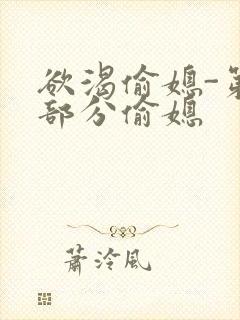 欲渴偷媳-第
部分偷媳
蕭泠風